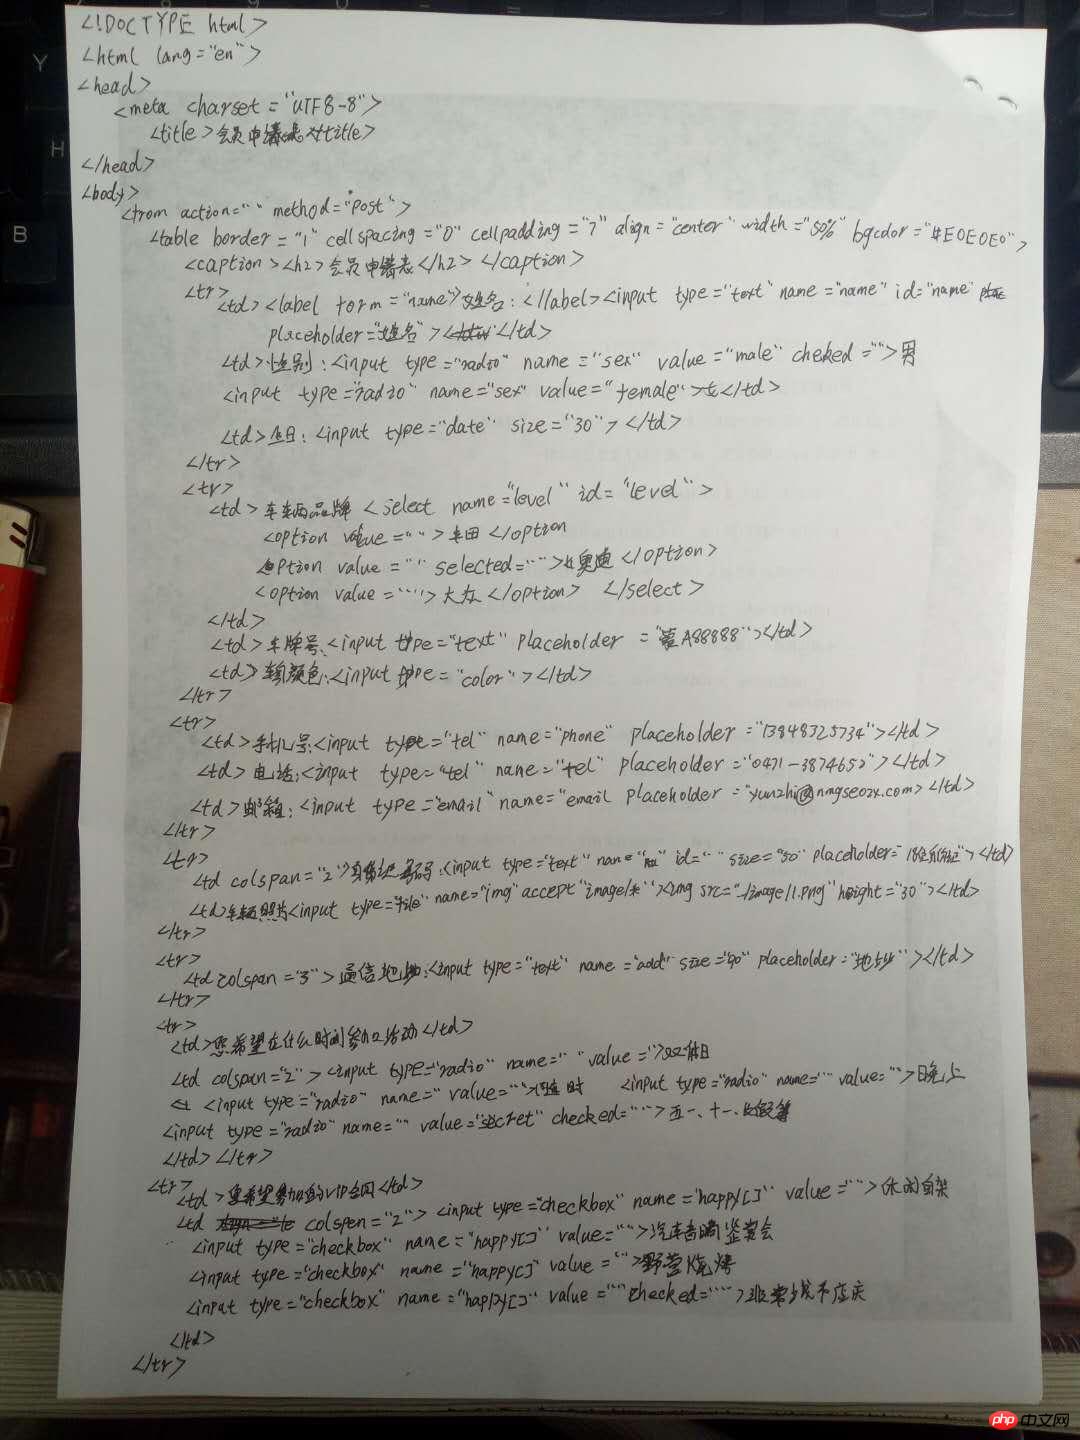 <!DOCTYPE html>
<html lang="en">
<head>
<meta charset="UTF8-8">
<title>会员申请表</title>
</head>
<body>
<from action="" method="post">
<table border="1" cellspacing="0" cellpadding="7" align="center" width="50%" bgcolor="#E0E0E0">
<caption><h2>会员申请表</h2></caption>
<tr>
<td><label form="name">姓名:</label><input type="text" name="name" id="name"
placeholder="姓名"></td>
<td>性别:<input type="radio" name="sex" value="male" cheked="">男
<input type="radio" name="sex" value="female">女</td>
<td>生日:<input type="date" size="30"></td>
</tr>
<tr>
<td>车辆品牌 <select name="level" id="level">
<option value="">丰田</option
<option value="" selected="">奥迪</option>
<option value="">大众</option> </select>
</td>
<td>车牌号:<input type="text" placeholder="蒙A88888"></td>
<td>车辆颜色:<input type="color"></td>
</tr>
<tr>
<td>手机号:<input type="tel" name="phone" placeholder="13848325734"></td>
<td>电话:<input type="tel" name="tel" placeholder="0471-3874652"></td>
<td>邮箱:<input type="email" name="email placeholder="yunzhi@nmgseozx.com></td>
</tr>
<tr>
<td colspan="2">身份证号码:<input type="text" name= id="" size="50" placeholder="18位身份证"></td>
<td>车辆照片<input type="file" name="img" accept"image/*"><img src="./image/1.png" height="30"></td>
</tr>
<tr>
<td colspan="3">通信地址:<input type="text" name="add" size="90" placeholder="地址"></td>
</tr>
<tr>
<td>您希望在什么时间参加活动</td>
<td colspan="2"><input type="radio" name="" value="">双休日
<input type="radio" name="" value="">随时 <input type="radio" name="" value="">晚上
<input type="radio" name="" value="secret" checked="">五一、十一、长假等
</td></tr>
<tr>
<td>您希望参加的VIP会员</td>
<td colspen="2"><input type="checkbox" name="happy[]" value="">休闲自驾
<input type="checkbox" name="happy[]" value="">汽车音响鉴赏会
<input type="checkbox" name="happy[]" value="">野营烧烤
<input type="checkbox" name="happy[]" value="" checked="">
</td>
</tr>
php 中文网